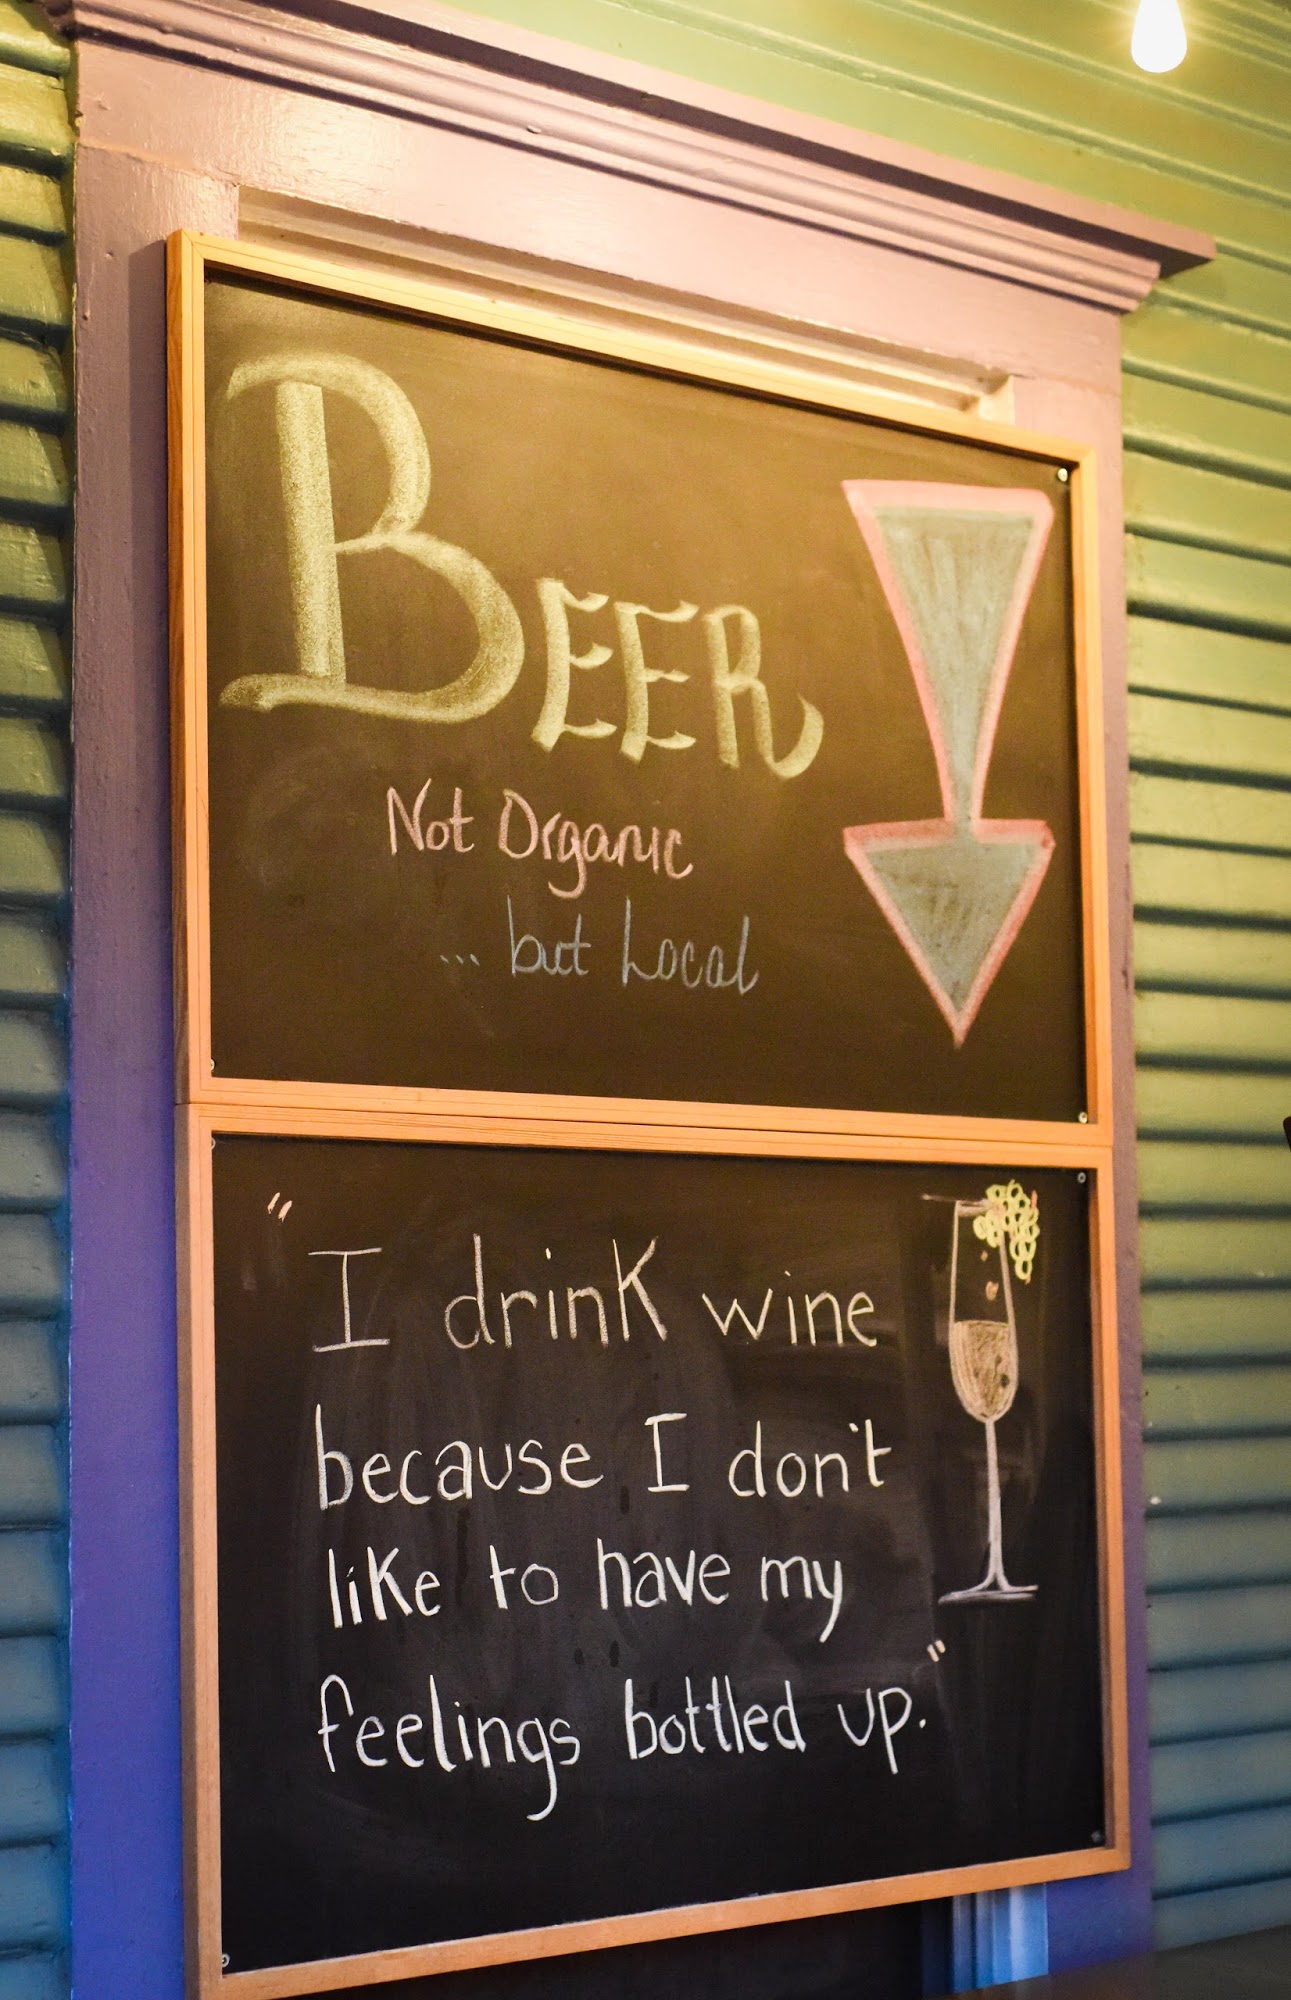 BEER
Not Organic
... but Local
"I drink wine
because I don't
like to have my
feelings bottled up."